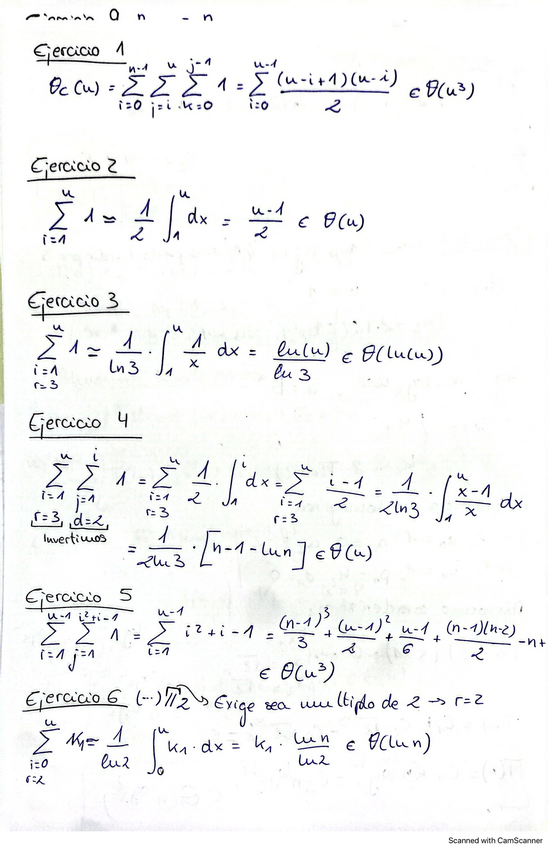 Ejercicio 1
θc(n) = \sum_{i=0}^{n-1} \sum_{j=i}^{n} \sum_{k=0}^{j-1} 1 = \sum_{i=0}^{n-1} \frac{(n-i+1)(n-i)}{2} ∈ θ(n³)
Ejercicio 2
\sum_{i=1}^{n} 1 ≃ \frac{1}{2} \int_{1}^{n} dx = \frac{n-1}{2} ∈ θ(n)
Ejercicio 3
\sum_{i=1, r=3}^{n} 1 ≃ \frac{1}{ln3} · \int_{1}^{n} \frac{1}{x} dx = \frac{ln(n)}{ln 3} ∈ θ(ln(n))
Ejercicio 4
\sum_{i=1, r=3}^{n} \sum_{j=1, d=2}^{i} 1 = \sum_{i=1, r=3}^{n} \frac{1}{2} · \int_{1}^{i} dx = \sum_{i=1, r=3}^{n} \frac{i-1}{2} = \frac{1}{2ln3} · \int_{1}^{n} \frac{x-1}{x} dx
Invertimos
= \frac{1}{2ln3} · [n-1-ln n] ∈ θ(n)
Ejercicio 5
\sum_{i=1}^{n-1} \sum_{j=1}^{i²+i-1} 1 = \sum_{i=1}^{n-1} i²+i-1 = \frac{(n-1)³}{3} + \frac{(n-1)²}{2} + \frac{n-1}{6} + \frac{(n-1)(n-2)}{2} -n+
∈ θ(n³)
Ejercicio 6 (...) Exige sea multiplo de 2 → r=2
\sum_{i=0, r=2}^{n} K₁ ≃ \frac{1}{ln2} \int_{0}^{n} K₁ · dx = K₁ · \frac{ln n}{ln2} ∈ θ(ln n)
Scanned with CamScanner